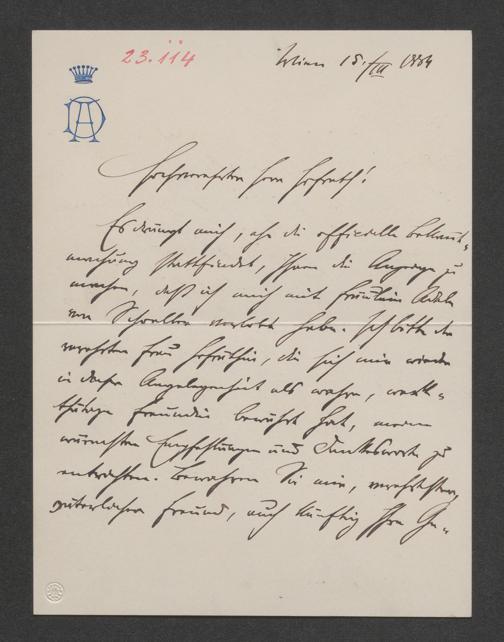 23.114
Wien 15./III 1884
Hochverehrter Herr Hofrath!
Es drängt mich, ehe die officielle Bekannt-
machung stattfindet, Ihnen die Anzeige zu
machen, daß ich mich mit Fräulein Adele
von Schoeller verlobt habe. Ich bitte der
verehrten Frau Hofräthin, die sich mir wieder
in dieser Angelegenheit als wahre, werk-
thätige Freundin bewährt hat, meine
wärmsten Empfehlungen und Dankesworte zu
entrichten. Bewahren Sie mir, verehrtester,
väterlicher Freund, auch künftig Ihre Ge-